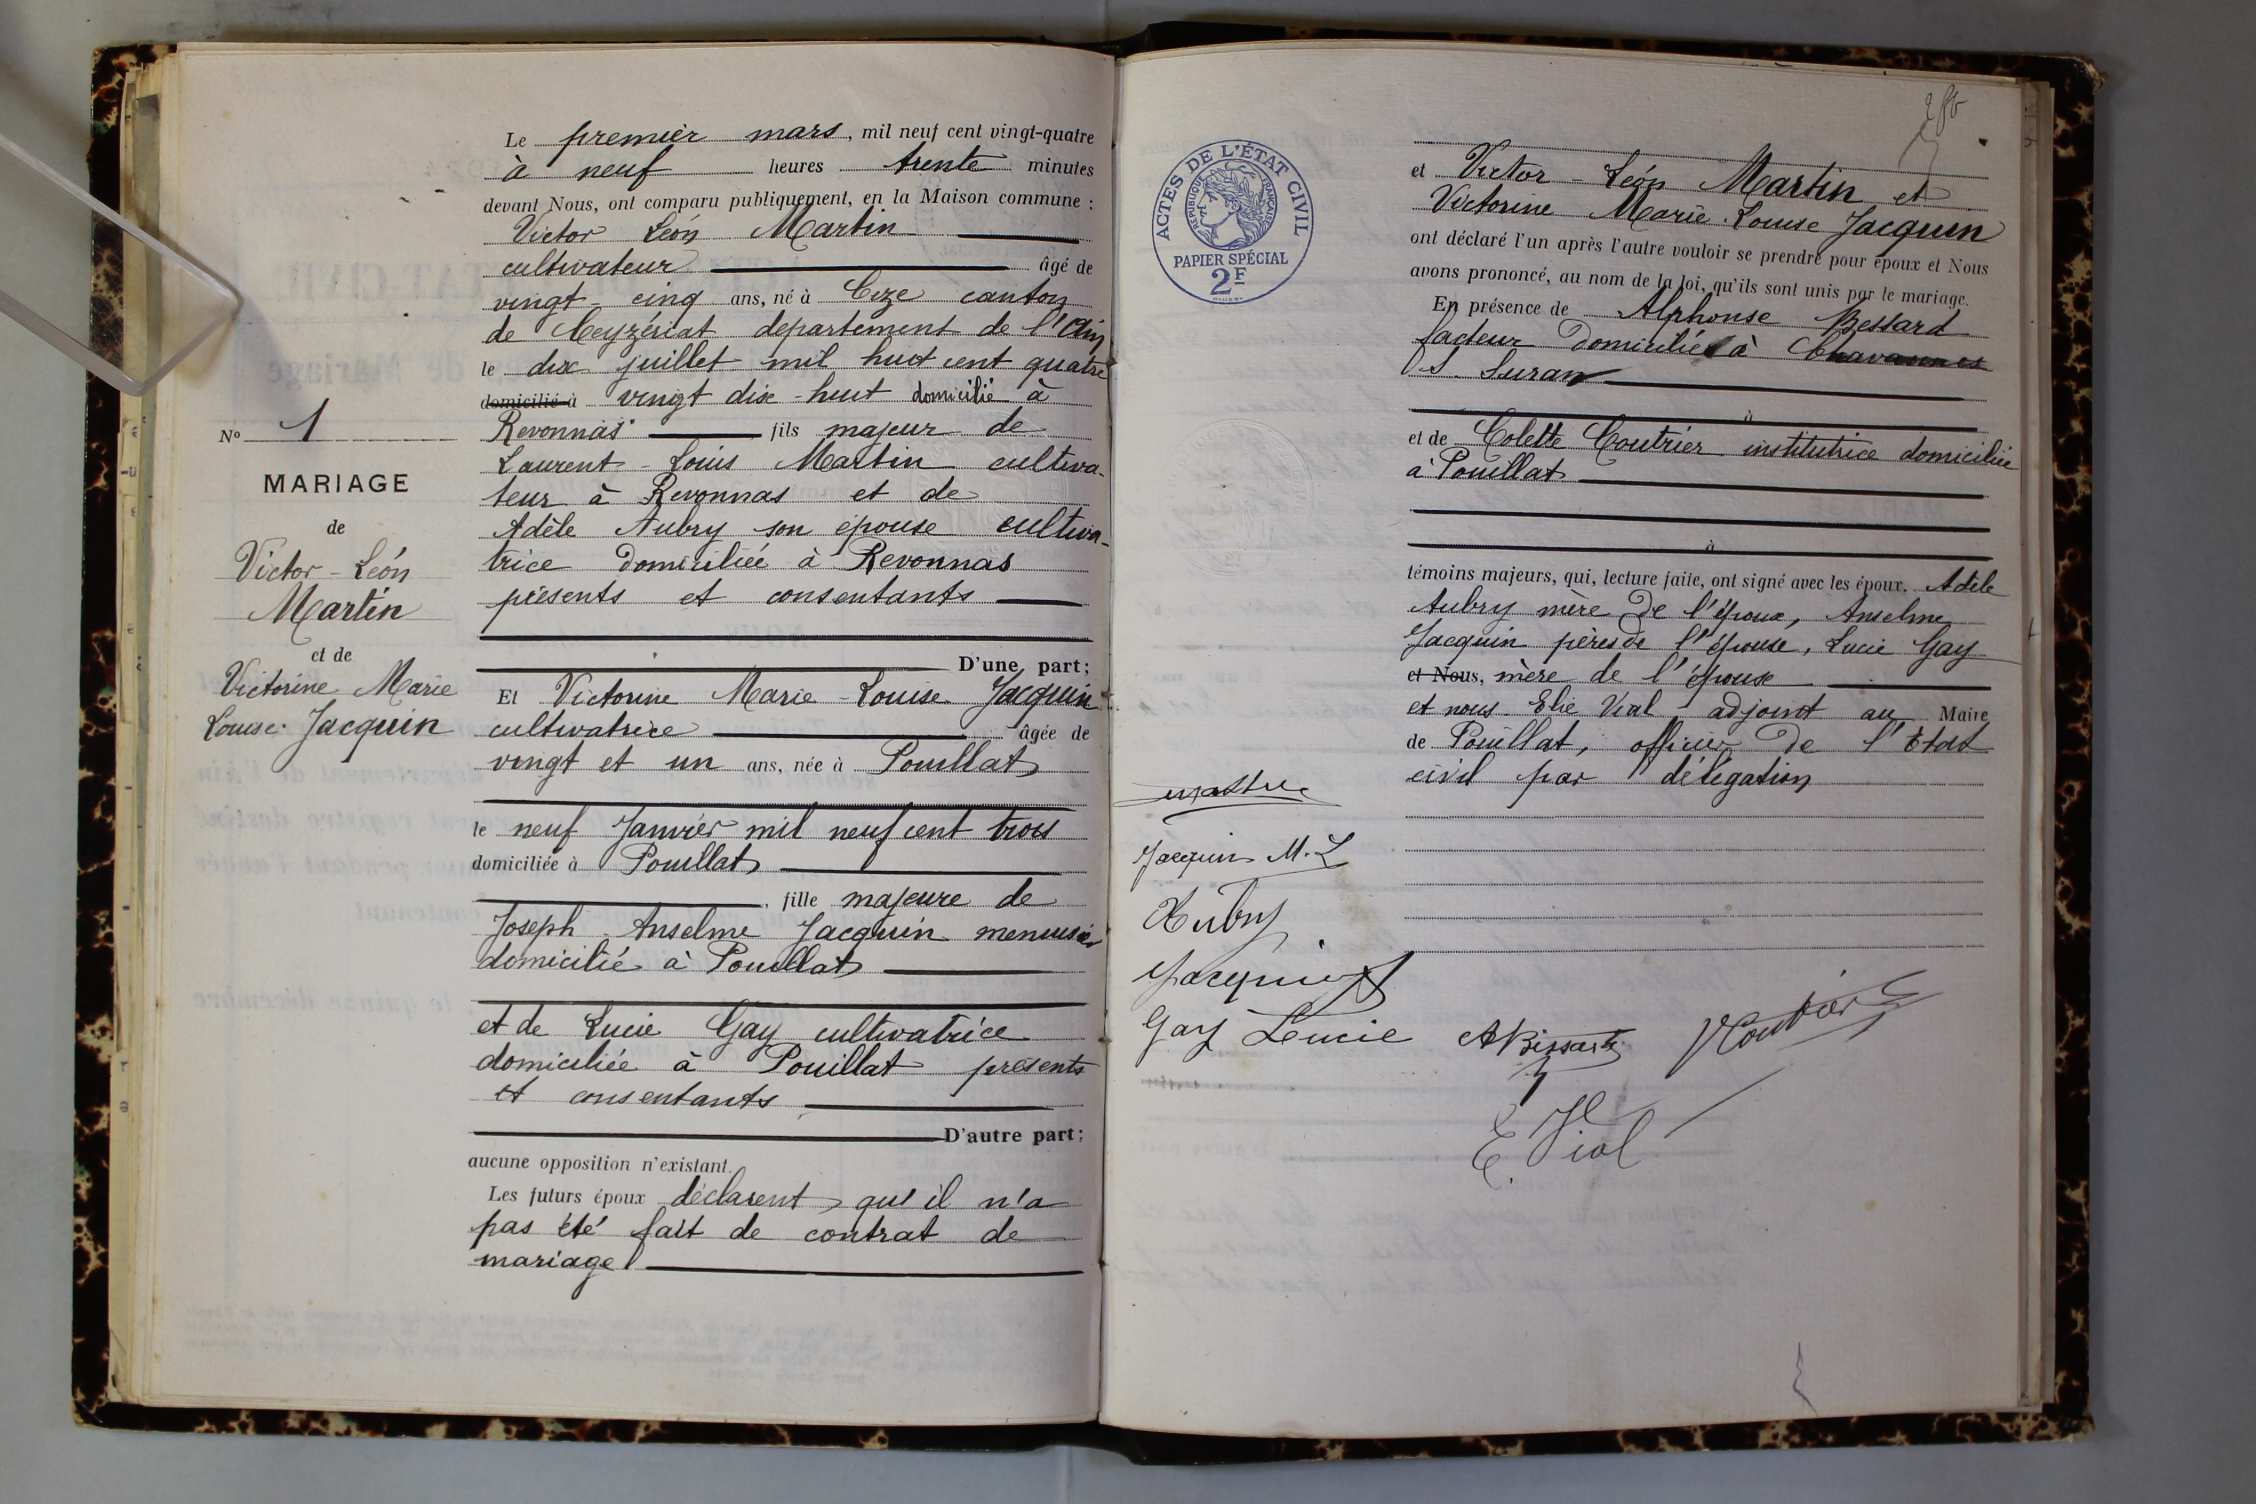 Le premier mars, mil neuf cent vingt-quatre
à neuf heures trente minutes
devant Nous, ont comparu publiquement, en la Maison commune :
Victor Léon Martin
cultivateur âgé de
vingt-cinq ans, né à Cize canton
de Ceyzériat département de l'Ain
le dix juillet mil huit cent quatre
domicilié à vingt dix-huit domicilié à
Revonnas fils majeur de
Laurent-Louis Martin cultiva-
teur à Revonnas et de
Adèle Aubry son épouse cultiva-
trice domiciliée à Revonnas
présents et consentants
D'une part;
Et Victorine Marie-Louise Jacquin
cultivatrice âgée de
vingt et un ans, née à Pouillat
le neuf Janvier mil neuf cent trois
domiciliée à Pouillat
, fille majeure de
Joseph Anselme Jacquin menuisier
domicilié à Pouillat
et de Lucie Gay cultivatrice
domiciliée à Pouillat présents
et consentants
D'autre part;
aucune opposition n'existant.
Les futurs époux déclarent qu'il n'a
pas été fait de contrat de
mariage
N° 1
MARIAGE
de
Victor-Léon
Martin
et de
Victorine Marie
Louise Jacquin
ACTES DE L'ÉTAT CIVIL
RÉPUBLIQUE FRANÇAISE
PAPIER SPÉCIAL
2F
et Victor-Léon Martin et
Victorine Marie-Louise Jacquin
ont déclaré l'un après l'autre vouloir se prendre pour époux et Nous
avons prononcé, au nom de la loi, qu'ils sont unis par le mariage.
En présence de Alphonse Bessard
facteur domicilié à Chavannes
s. Suran
à
et de Colette Coutrier institutrice domiciliée
à Pouillat
à
témoins majeurs, qui, lecture faite, ont signé avec les époux. Adèle
Aubry mère de l'époux, Anselme
Jacquin père de l'épouse, Lucie Gay
et Nous, mère de l'épouse
et nous Elie Vial adjoint au Maire
de Pouillat, officier de l'Etat
civil par délégation
Jacquin M. L
Aubry
Jacquin
Gay Lucie
A Bessard
Coutrier
E. Vial